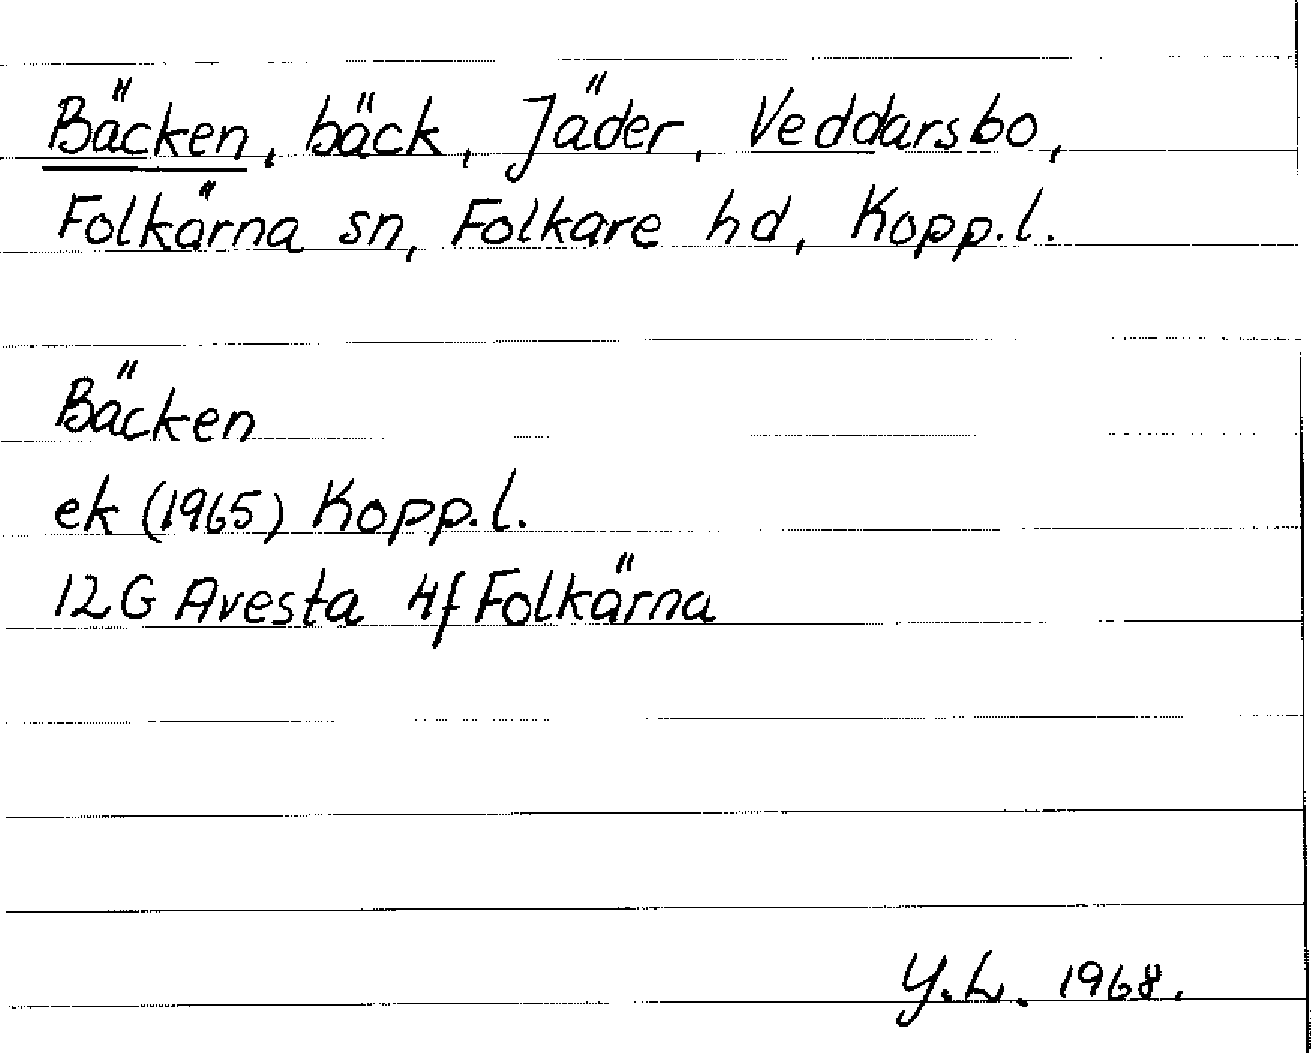 Bäcken, bäck, Jäder, Veddarsbo,
Folkärna sn, Folkare hd, Kopp.l.
Bäcken
ek (1965) Kopp.l.
12G Avesta 4f Folkärna
Y.L. 1968.